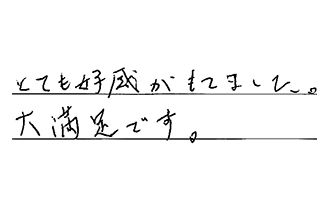 とても好感がもてました。
大満足です。